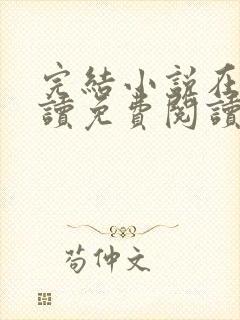 完結小說在
讀免費閱讀
苟仲文